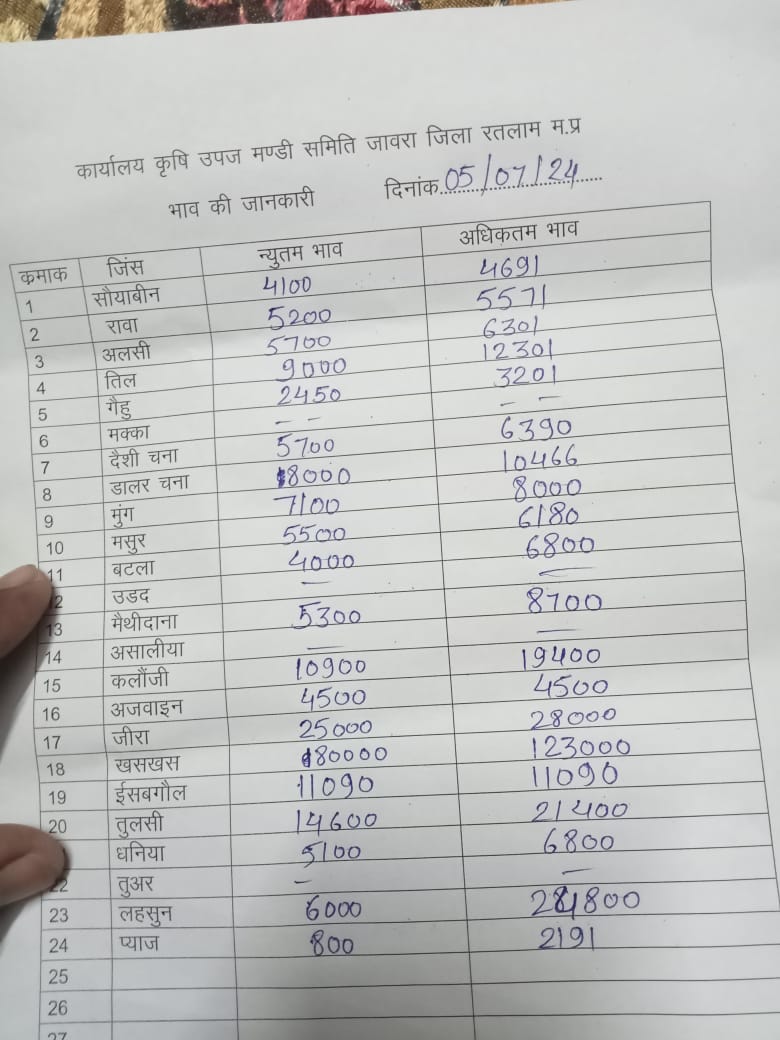 कार्यालय कृषि उपज मण्डी समिति जावरा जिला रतलाम म.प्र
भाव की जानकारी दिनांक 05/07/24
कमाक जिंस न्युतम भाव अधिकतम भाव
1 सौयाबीन 4100 4691
2 रावा 5200 5571
3 अलसी 5700 6301
4 तिल 9000 12301
5 गैहु 2450 3201
6 मक्का -- --
7 दैशी चना 5700 6390
8 डालर चना 8000 10466
9 मुंग 7100 8000
10 मसुर 5500 6180
11 बटला 4000 6800
12 उडद — —
13 मैथीदाना 5300 8700
14 असालीया — —
15 कलौंजी 10900 19400
16 अजवाइन 4500 4500
17 जीरा 25000 28000
18 खसखस 80000 123000
19 ईसबगौल 11090 11090
20 तुलसी 14600 21400
धनिया 5100 6800
22 तुअर — —
23 लहसुन 6000
24 प्याज 800 2191
25
26
27